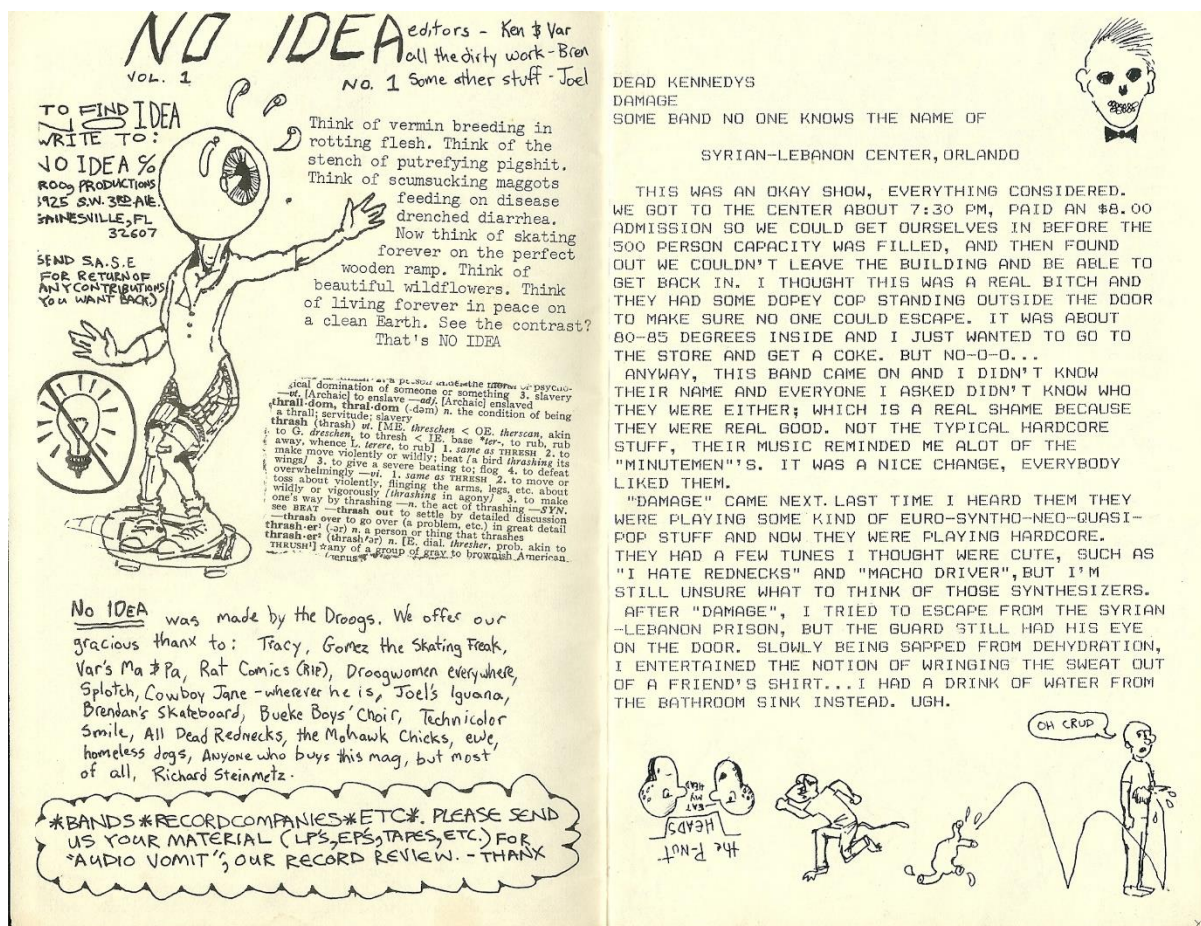 NO IDEA
VOL. 1
NO. 1
editors - Ken & Var
all the dirty work - Bren
Some other stuff - Joel
TO FIND IDEA
WRITE TO:
NO IDEA %
PRODUCTIONS
S.W. 3RD AVE.
GAINESVILLE, FL
32607
SEND S.A.S.E
FOR RETURN OF
ANY CONTRIBUTIONS
YOU WANT BACK)
Think of vermin breeding in
rotting flesh. Think of the
stench of putrefying pigshit.
Think of scumsucking maggots
feeding on disease
drenched diarrhea.
Now think of skating
forever on the perfect
wooden ramp. Think of
beautiful wildflowers. Think
of living forever in peace on
a clean Earth. See the contrast?
That's NO IDEA
ical domination of someone or something 3. slavery
—vt. [Archaic] to enslave —adj. [Archaic] enslaved
thrall·dom, thral·dom (-dəm) n. the condition of being
a thrall; servitude; slavery
thrash (thrash) vt. [ME. threschen < OE. therscan, akin
to G. dreschen, to thresh < IE. base *ter-, to rub, rub
away, whence L. terere, to rub] 1. same as THRESH 2. to
make move violently or wildly; beat [a bird thrashing its
wings] 3. to give a severe beating to; flog 4. to defeat
overwhelmingly —vi. 1. same as THRESH 2. to move or
toss about violently, flinging the arms, legs, etc. about
wildly or vigorously [thrashing in agony] 3. to make
one's way by thrashing —n. the act of thrashing —SYN.
see BEAT —thrash out to settle by detailed discussion
—thrash over to go over (a problem, etc.) in great detail
thrash·er¹ (-ər) n. a person or thing that thrashes
thrash·er² (thrash′ər) n. [E. dial. thresher, prob. akin to
THRUSH¹] any of a group of gray to brownish American
No IDEA was made by the Droogs. We offer our
gracious thanx to: Tracy, Gomez the Skating Freak,
Var's Ma & Pa, Rat Comics (RIP), Droogwomen everywhere,
Splotch, Cowboy Jane - wherever he is, Joel's Iguana,
Brendan's Skateboard, Bueke Boys' Choir, Technicolor
Smile, All Dead Rednecks, the Mohawk Chicks, ewe,
homeless dogs, Anyone who buys this mag, but most
of all, Richard Steinmetz.
*BANDS*RECORDCOMPANIES*ETC*. PLEASE SEND
US YOUR MATERIAL (LP'S, EP'S, TAPES, ETC.) FOR
"AUDIO VOMIT", OUR RECORD REVIEW. - THANX
DEAD KENNEDYS
DAMAGE
SOME BAND NO ONE KNOWS THE NAME OF
SYRIAN-LEBANON CENTER, ORLANDO
THIS WAS AN OKAY SHOW, EVERYTHING CONSIDERED.
WE GOT TO THE CENTER ABOUT 7:30 PM, PAID AN $8.00
ADMISSION SO WE COULD GET OURSELVES IN BEFORE THE
500 PERSON CAPACITY WAS FILLED, AND THEN FOUND
OUT WE COULDN'T LEAVE THE BUILDING AND BE ABLE TO
GET BACK IN. I THOUGHT THIS WAS A REAL BITCH AND
THEY HAD SOME DOPEY COP STANDING OUTSIDE THE DOOR
TO MAKE SURE NO ONE COULD ESCAPE. IT WAS ABOUT
80-85 DEGREES INSIDE AND I JUST WANTED TO GO TO
THE STORE AND GET A COKE. BUT NO-O-O...
ANYWAY, THIS BAND CAME ON AND I DIDN'T KNOW
THEIR NAME AND EVERYONE I ASKED DIDN'T KNOW WHO
THEY WERE EITHER; WHICH IS A REAL SHAME BECAUSE
THEY WERE REAL GOOD. NOT THE TYPICAL HARDCORE
STUFF, THEIR MUSIC REMINDED ME ALOT OF THE
"MINUTEMEN"'S. IT WAS A NICE CHANGE, EVERYBODY
LIKED THEM.
"DAMAGE" CAME NEXT. LAST TIME I HEARD THEM THEY
WERE PLAYING SOME KIND OF EURO-SYNTHO-NEO-QUASI-
POP STUFF AND NOW THEY WERE PLAYING HARDCORE.
THEY HAD A FEW TUNES I THOUGHT WERE CUTE, SUCH AS
"I HATE REDNECKS" AND "MACHO DRIVER", BUT I'M
STILL UNSURE WHAT TO THINK OF THOSE SYNTHESIZERS.
AFTER "DAMAGE", I TRIED TO ESCAPE FROM THE SYRIAN
-LEBANON PRISON, BUT THE GUARD STILL HAD HIS EYE
ON THE DOOR. SLOWLY BEING SAPPED FROM DEHYDRATION,
I ENTERTAINED THE NOTION OF WRINGING THE SWEAT OUT
OF A FRIEND'S SHIRT...I HAD A DRINK OF WATER FROM
THE BATHROOM SINK INSTEAD. UGH.
OH CRUD
the P-NUT
HEADS
EAT
MY
HEAD